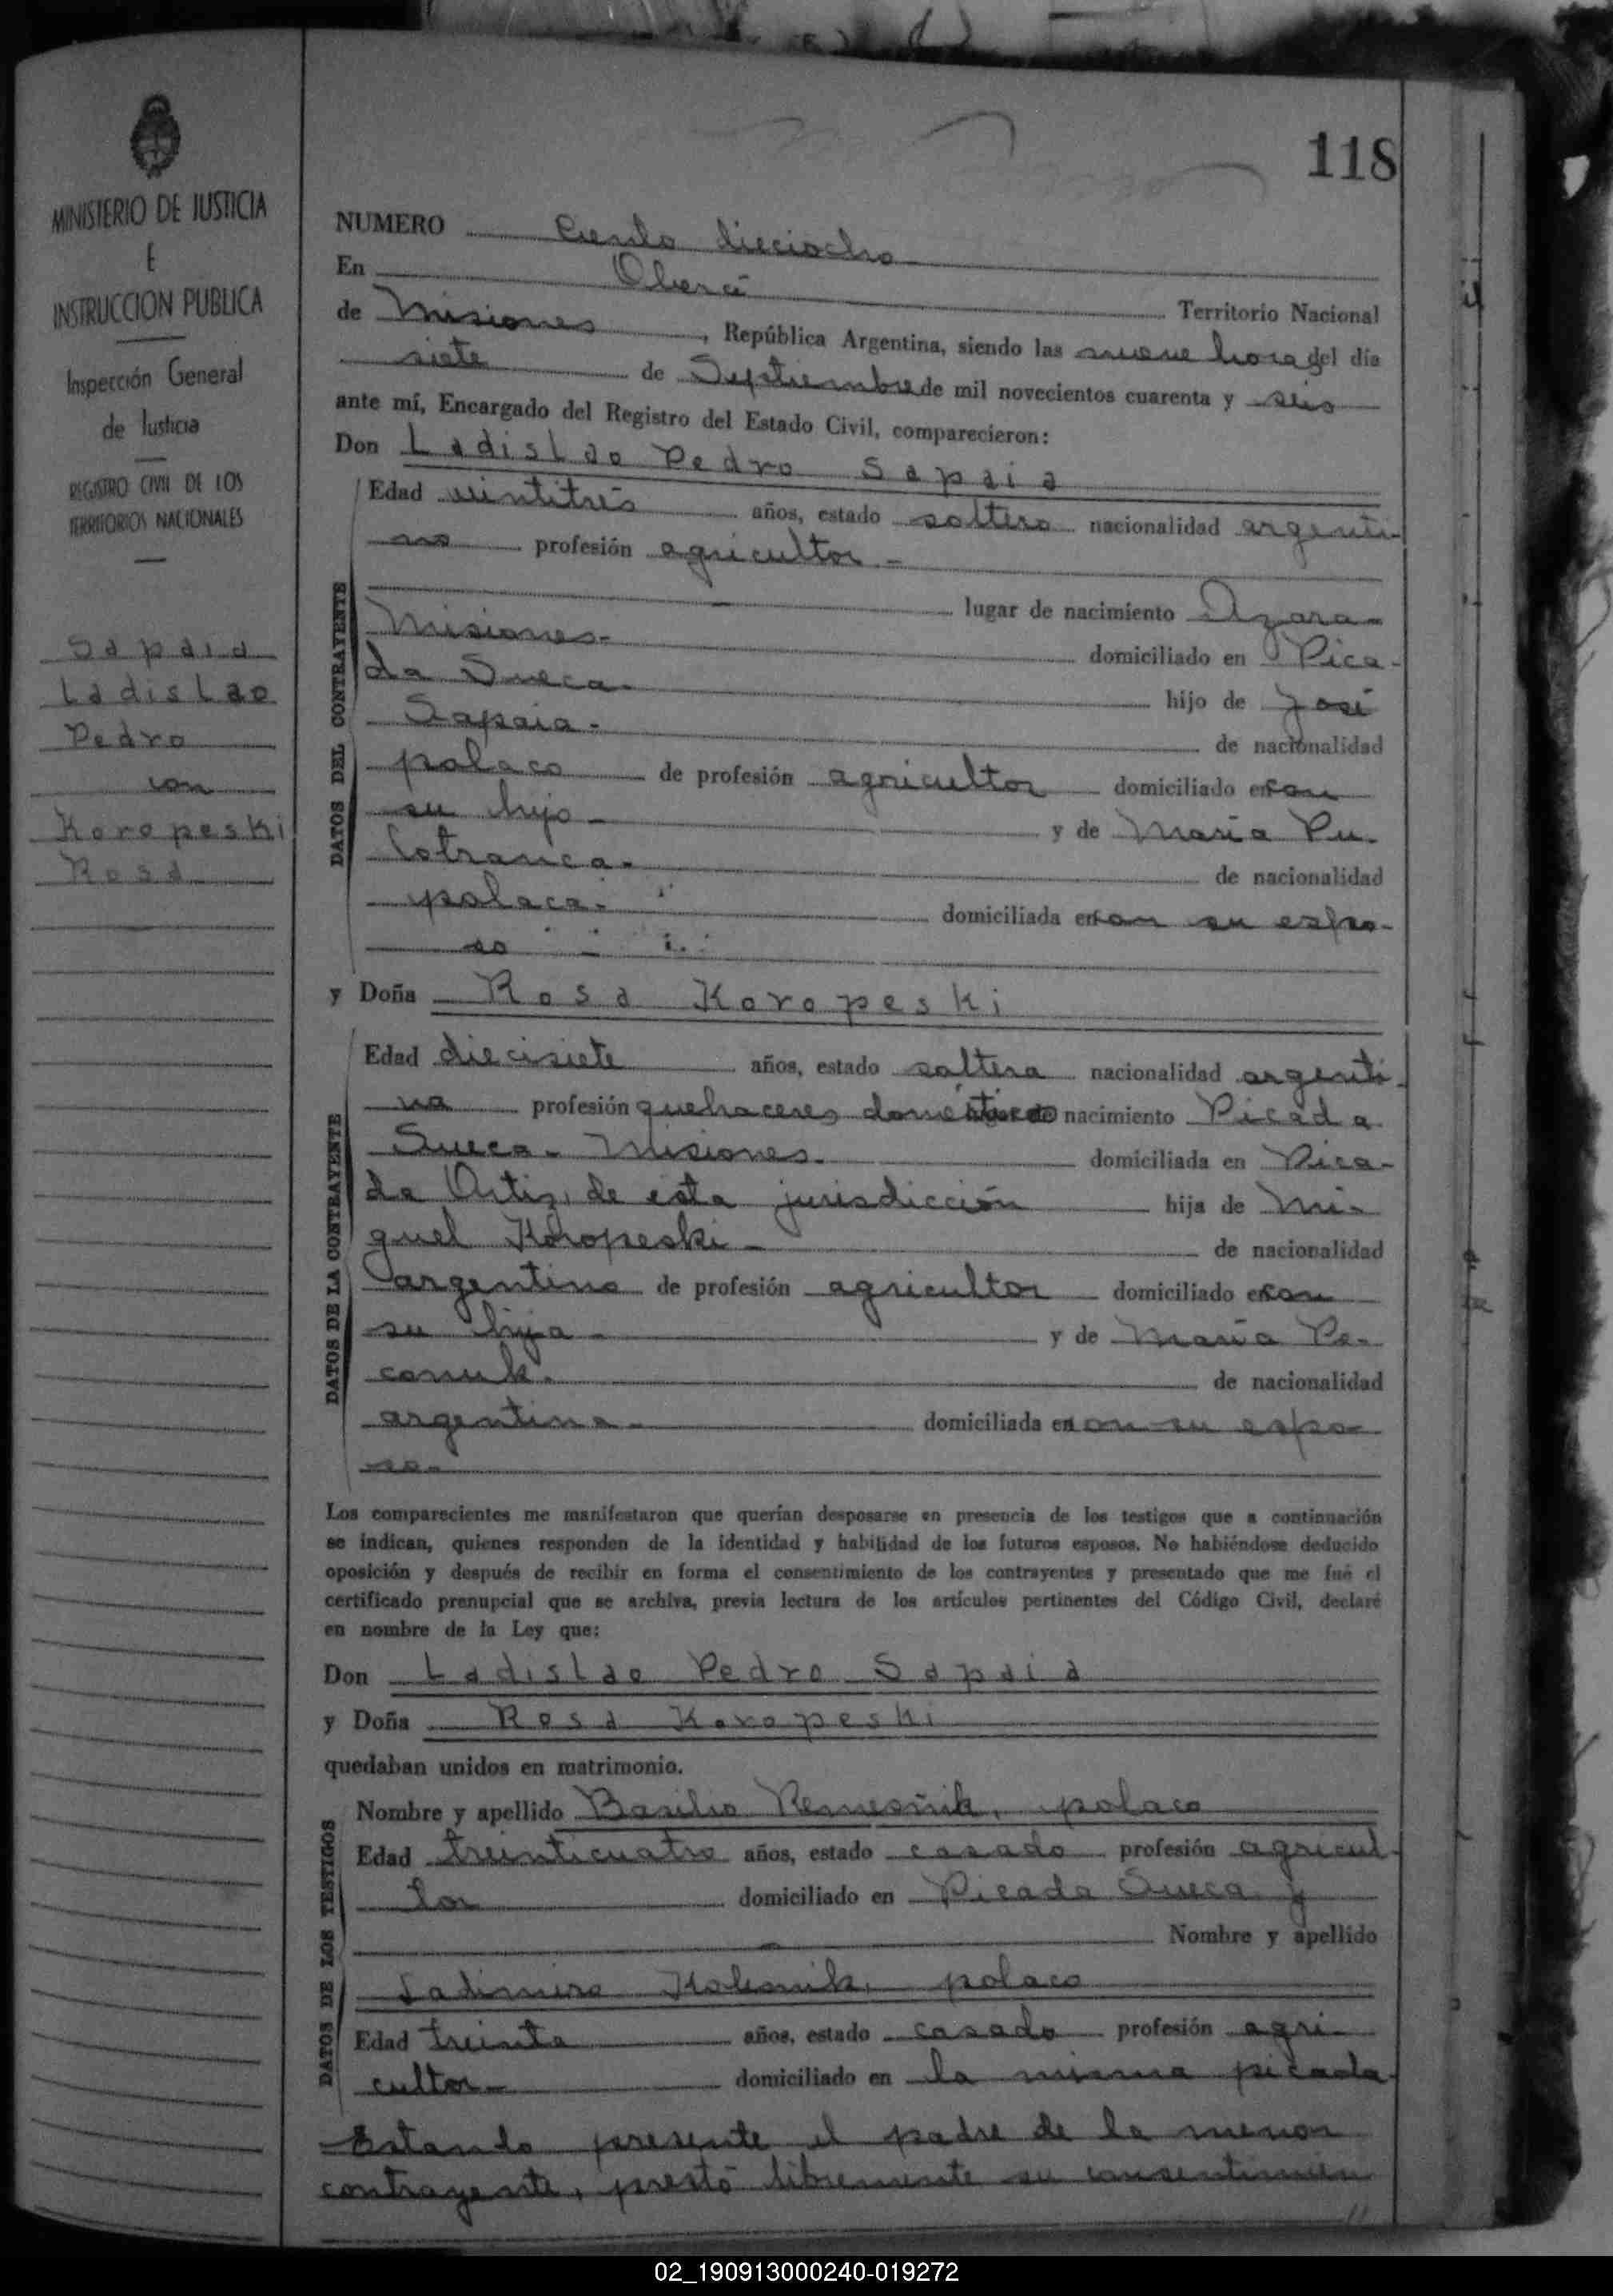 118
MINISTERIO DE JUSTICIA
E
INSTRUCCION PUBLICA
Inspección General
de Justicia
REGISTRO CIVIL DE LOS
TERRITORIOS NACIONALES
Sapaia
Ladislao
Pedro
con
Koropeski
Rosa
NUMERO Ciento dieciocho
En Oberá
Territorio Nacional
de Misiones, República Argentina, siendo las nueve horas del día
siete de Septiembre de mil novecientos cuarenta y seis
ante mí, Encargado del Registro del Estado Civil, comparecieron:
Don Ladislao Pedro Sapaia
DATOS DEL CONTRAYENTE
Edad veintitrés años, estado soltero nacionalidad argenti-
no profesión agricultor -
lugar de nacimiento Azara-
Misiones- domiciliado en Pica-
da Sueca- hijo de José
Sapaia- de nacionalidad
polaco de profesión agricultor domiciliado en con
su hijo- y de María Pu-
cotranca- de nacionalidad
polaca- domiciliada en con su espo-
so
y Doña Rosa Koropeski
DATOS DE LA CONTRAYENTE
Edad diecisiete años, estado soltera nacionalidad argenti-
na profesión quehaceres domésticos nacimiento Picada
Sueca- Misiones- domiciliada en Pica-
da Ortiz, de esta jurisdicción hija de Mi-
guel Koropeski- de nacionalidad
argentino de profesión agricultor domiciliado en con
su hija- y de María
de nacionalidad
argentina- domiciliada en con su espo-
so-
Los comparecientes me manifestaron que querían desposarse en presencia de los testigos que a continuación
se indican, quienes responden de la identidad y habilidad de los futuros esposos. No habiéndose deducido
oposición y después de recibir en forma el consentimiento de los contrayentes y presentado que me fué el
certificado prenupcial que se archiva, previa lectura de los artículos pertinentes del Código Civil, declaré
en nombre de la Ley que:
Don Ladislao Pedro Sapaia
y Doña Rosa Koropeski
quedaban unidos en matrimonio.
DATOS DE LOS TESTIGOS
Nombre y apellido Basilio polaco
Edad treinticuatro años, estado casado profesión agricul-
tor domiciliado en Picada Sueca y
Nombre y apellido
Ladimiro polaco
Edad treinta años, estado casado profesión agri-
cultor- domiciliado en la misma picada-
Estando presente el padre de la menor
contrayente, prestó libremente su consentimien
//
02_190913000240-019272